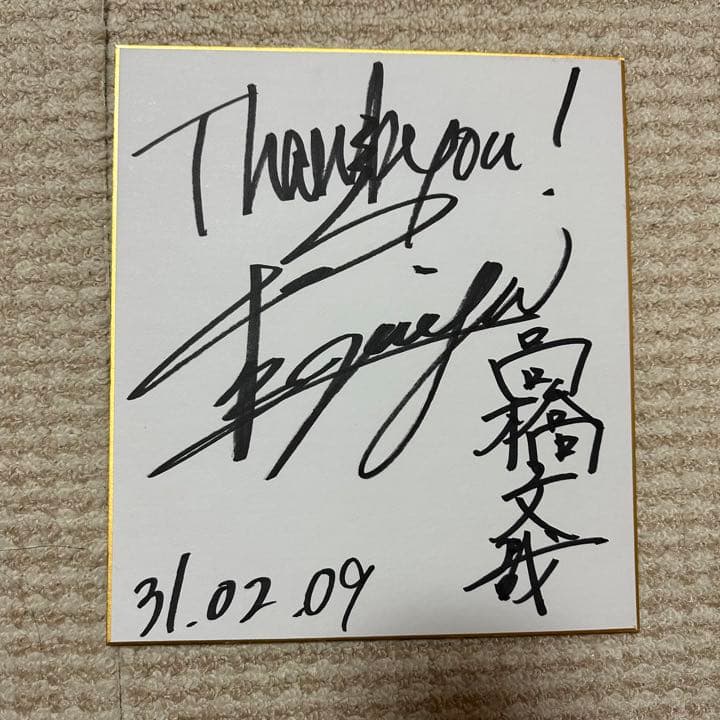 Thank you!
高橋文哉
31.02.09